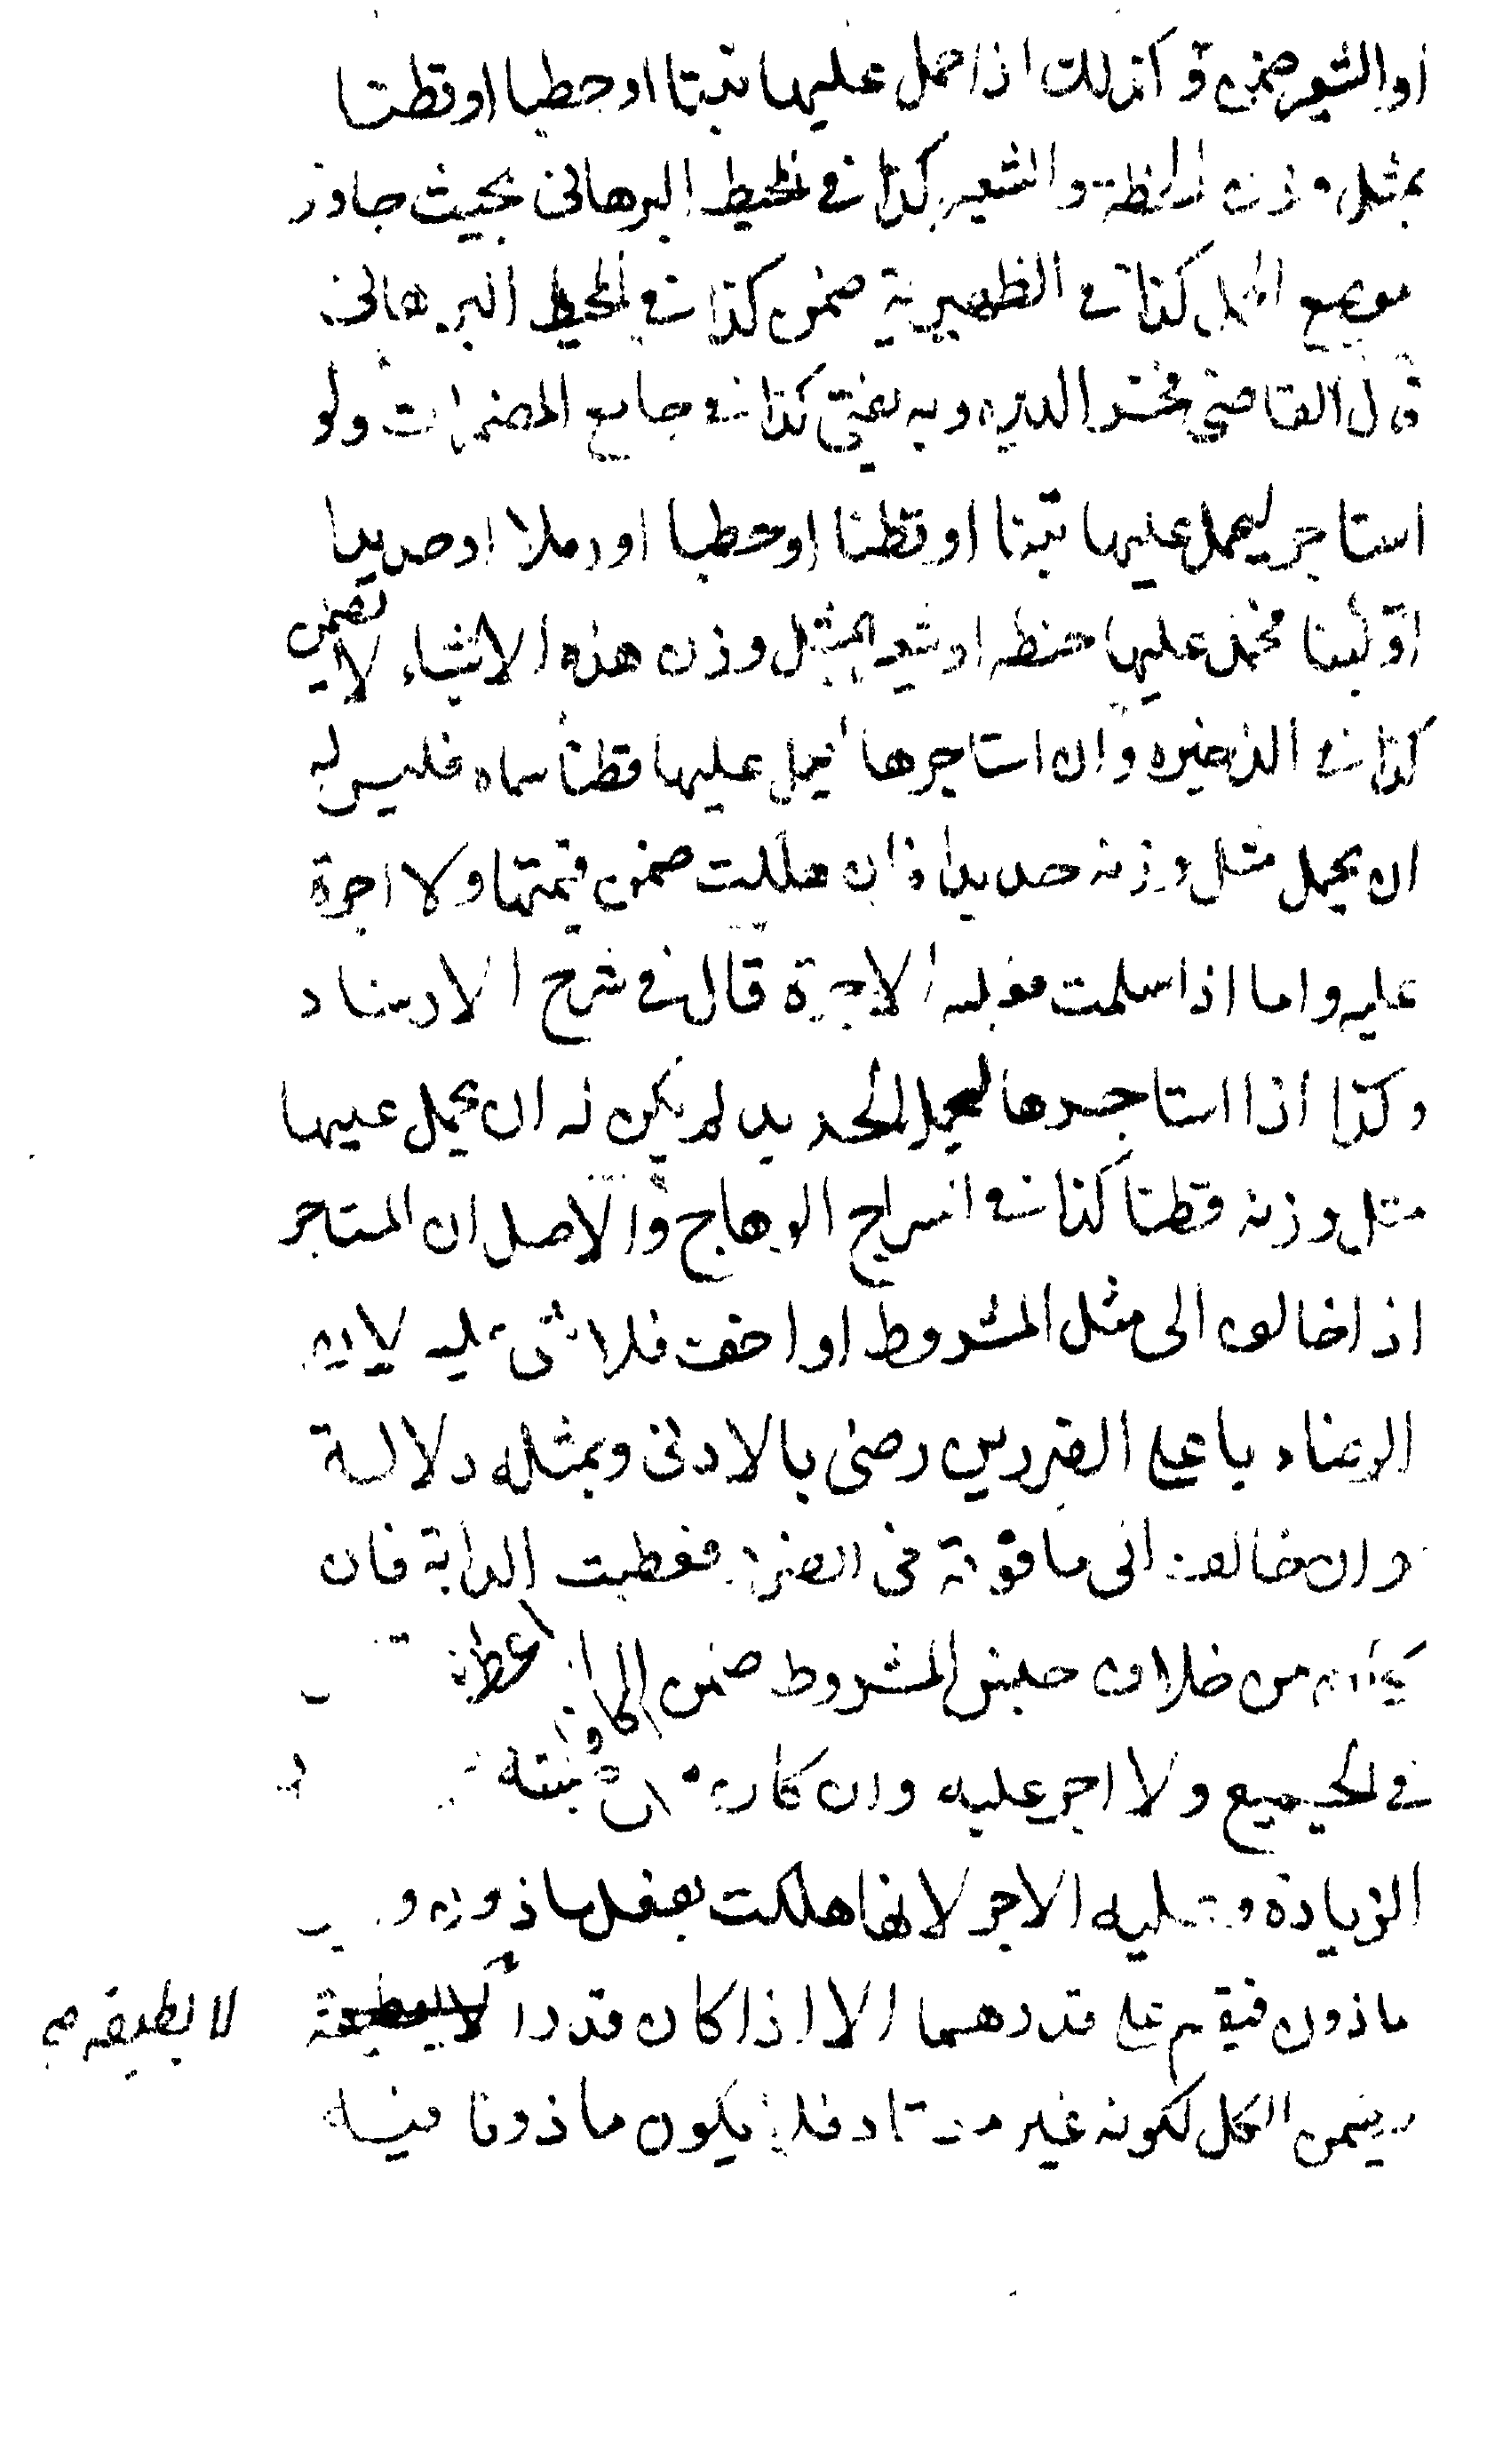 او الشعير ضمن وكذلك اذا حمل عليها تبنا او حطبا او قطنا
بمثل وزن الحنطة والشعير كذا في المحيط البرهاني بحيث جاوز
موضع الحمل كذا في الظهيرية ضمن كذا في المحيط البرهاني
قال القاضي فخر الدين وبه يفتى كذا في جامع المضمرات ولو
استاجر ليحمل عليها تبنا او قطنا او حطبا او رملا او حديدا
او لبنا فحمل عليها حنطه او شعيرا بمثل وزن هذه الاشياء لا يضمن
كذا في الذخيره وان استاجرها ليحمل عليها قطنا سماه فليس له
ان يحمل مثل وزنه حديدا فان هلكت ضمن قيمتها ولا اجرة
عليه واما اذا سلمت فعليه الاجرة قال في شرح الارشاد
وكذا اذا استاجرها ليحمل الحديد لم يكن له ان يحمل عليها
مثل وزنه قطنا كذا في السراج الوهاج والاصل ان المستاجر
اذا خالف الى مثل المشروط او اخف فلا شئ عليه لان
الرضاء باعلى الضررين رضى بالادنى وبمثله دلالة
وان خالف الى ما فوقه في الضرر فعطبت الدابة فان
كان من خلاف جنس المشروط ضمن
في الجميع ولا اجر عليه وان كان من جنسه
الزيادة وعليه الاجر لانها هلكت بفعل ماذون و
ماذون فيقسم على قدرهما الا اذا كان قدرا لا يطيقه صح
فيضمن الكل لكونه غير معتاد فلا يكون ماذونا فيه